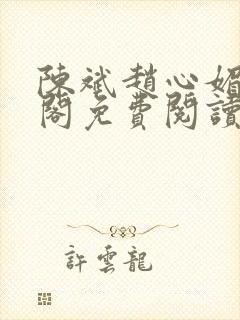 陳斌趙心媚
閣免費閱讀
許雲龍